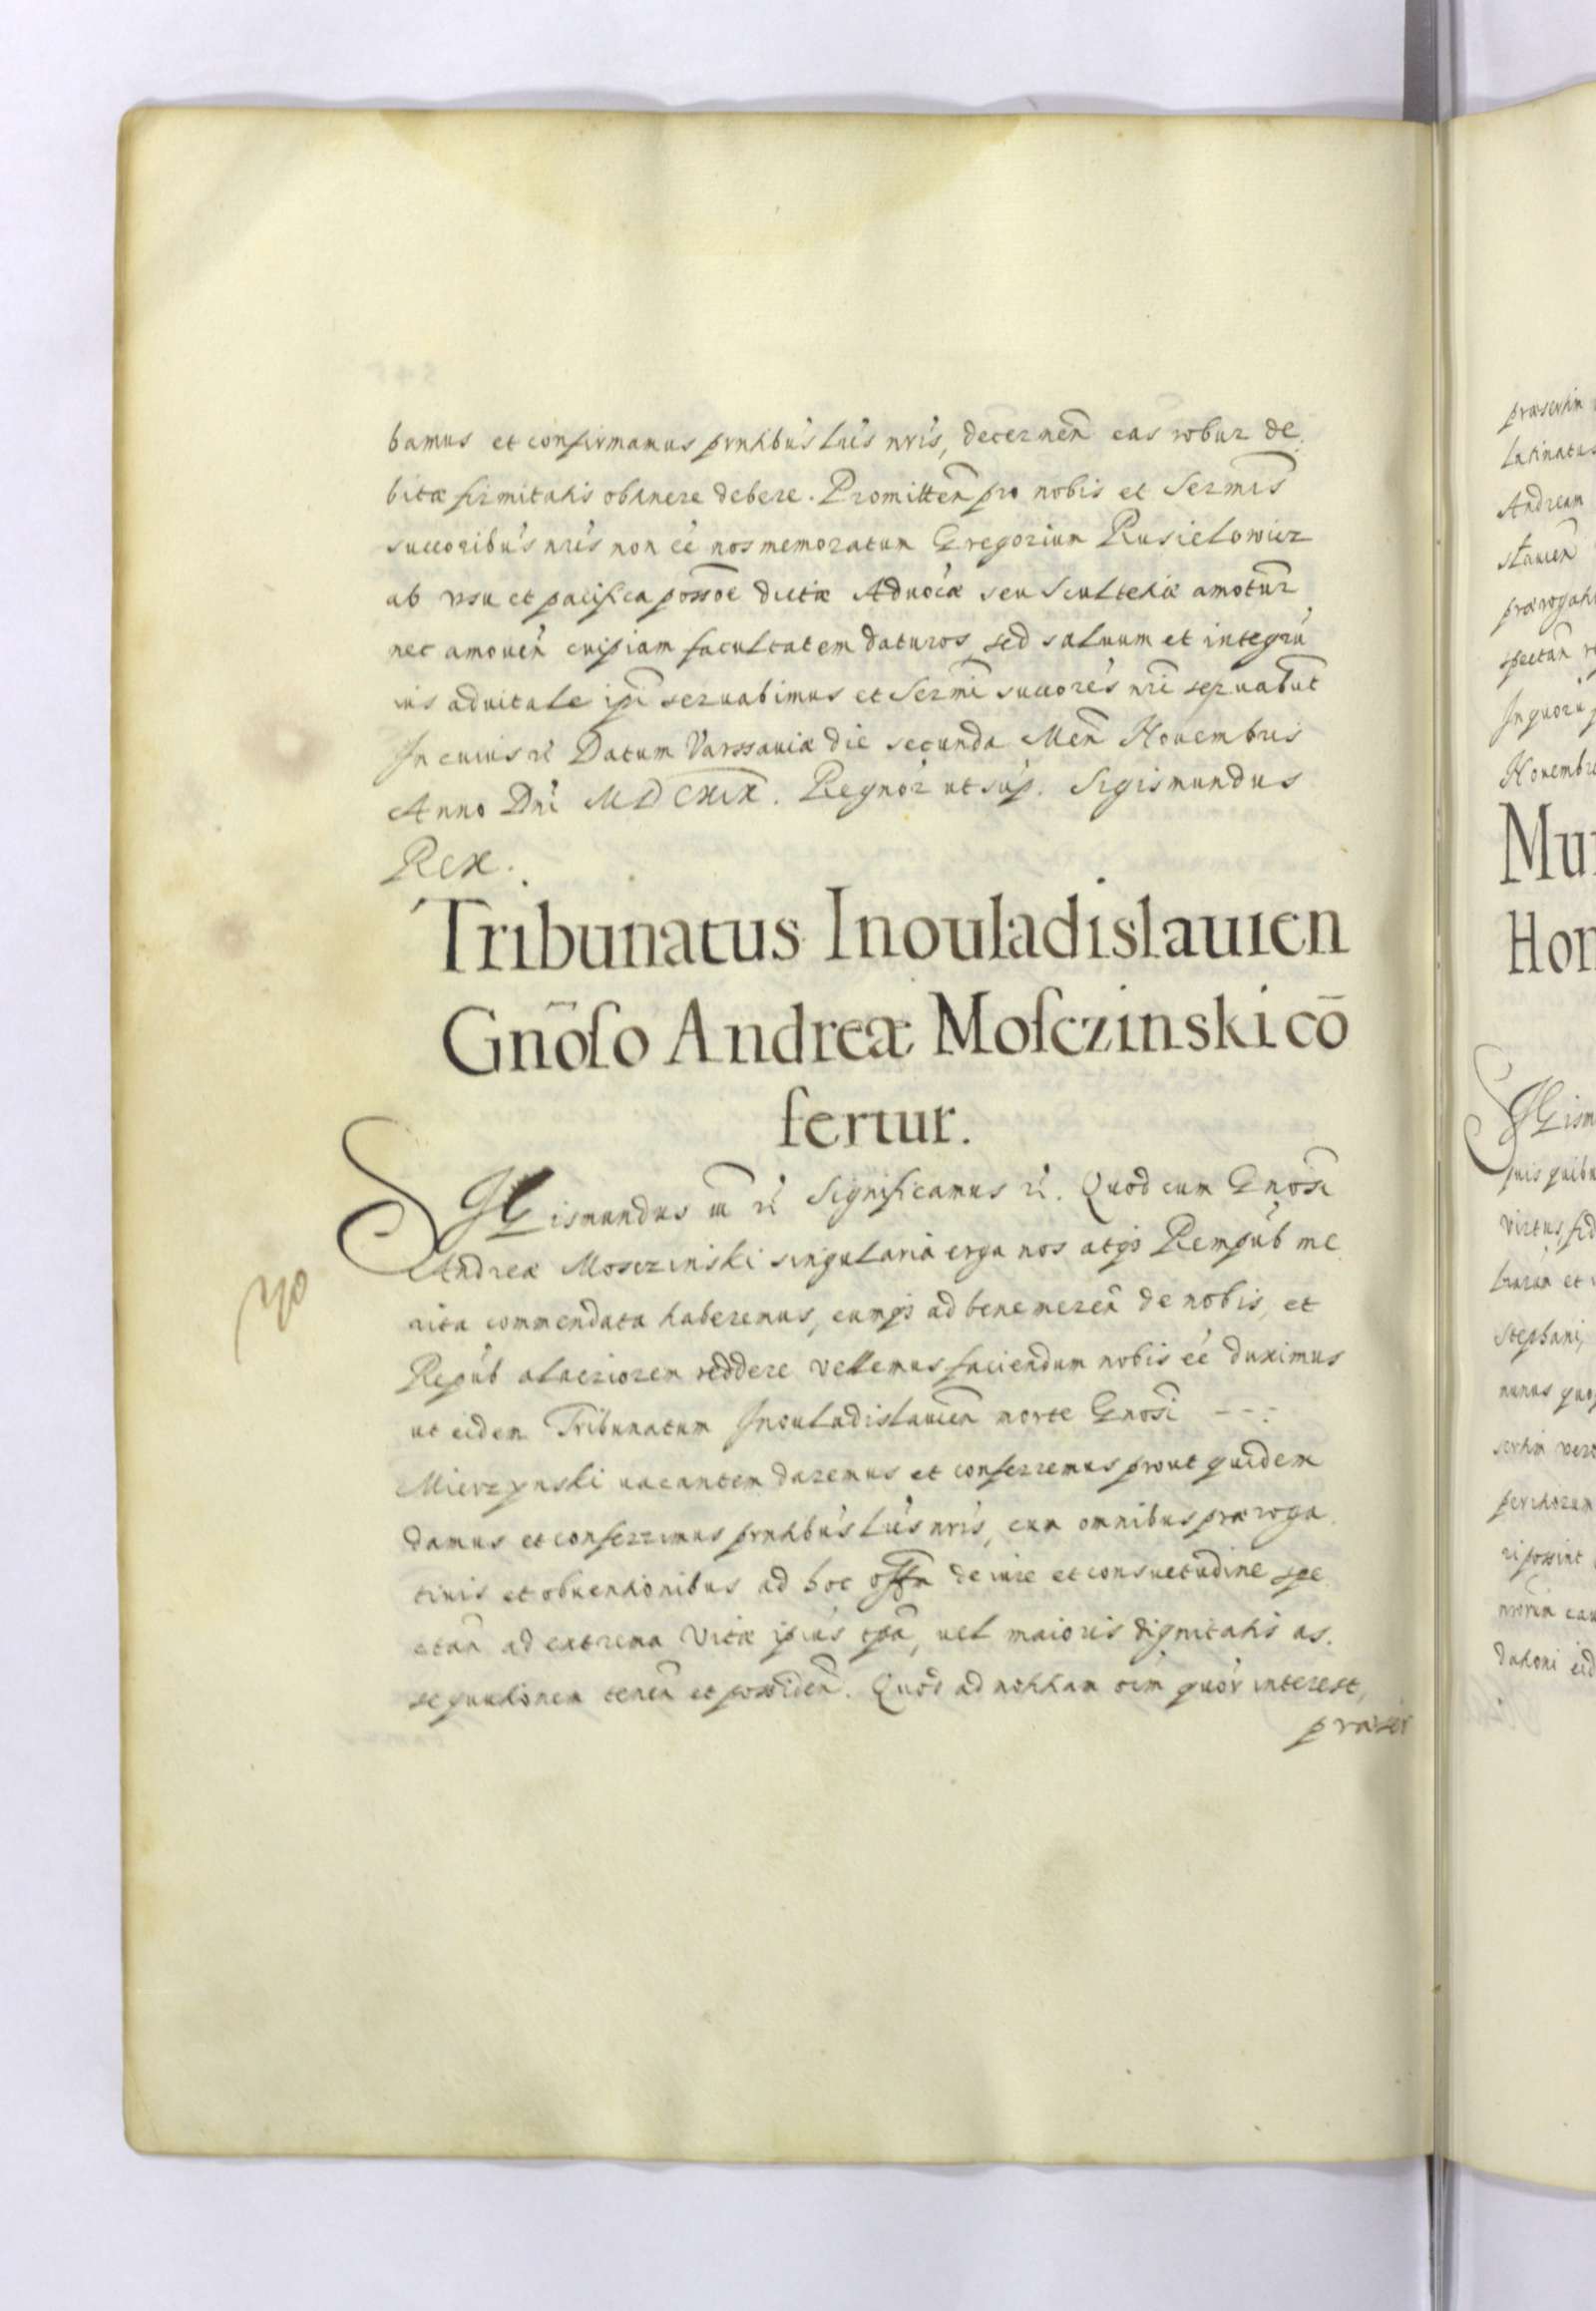 bamus et confirmamus prntibus lris nris, decernen eas robur de
bitæ firmitatis obtinere debere. Promitten pro nobis et Sermis
succoribus nris non ee nos memoratum Gregorium Rusielowicz
ab vsu et pacifica possoe dictæ Advocæ seu Scultetiæ amotur
nec amouen cuipiam facultatem daturos, sed saluum et integrũ
ius aduitale ipi seruabimus et Sermi succores nri seruabũt
In cuius rei Datum Varssauiæ die secunda Men Nouembris
Anno Dni MDCXIX. Regnor ut sup. Sigismundus
Rex.
Tribunatus Inouladislauien
Gnõſo Andreæ Moſczinski cõ
fertur.
SIGismundus III rei Significamus rei. Quod cum Gnosi
Andreæ Mosczinski singularia erga nos atqs Rempub me
rita commendata haberemus, eumqs ad bene meren de nobis, et
Repub alacriorem reddere vellemus faciendum nobis ee duximus
ut eidem Tribunatum Inouladislauien morte Gnosi ---
Mierzynski uacantem daremus et conferremus prout quidem
damus et conferrimus prntibus lris nris, cum omnibus præroga
tiuis et obuentionibus ad hoc offm de iure et consuetudine spe
ctan ad extrema Vitæ ipius tpa, uel maioris dignitatis as
sequutionem tenen et possiden. Quod ad notitiam oim quor interest,
præser
præsertim
Andream
spectan
In quorũ
Nouembris
Mu
Hon
SIGism
quibu
virtus, fid
et
Stephani,
munus quo
vero
possint